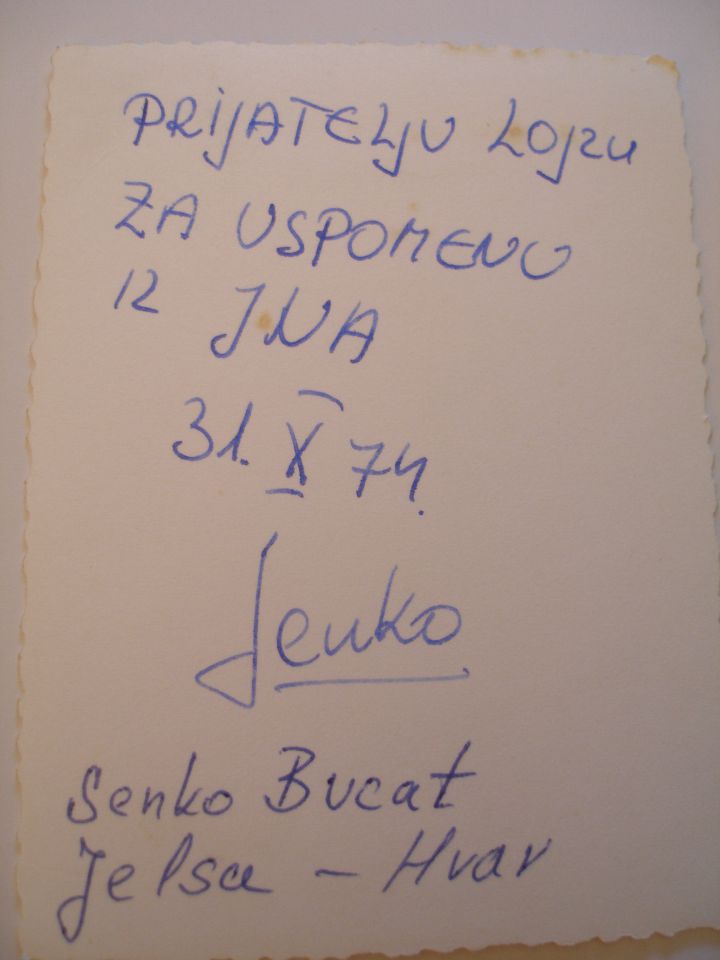 PRIJATELJU LOJZU
ZA USPOMENU
IZ JNA
31. X 74.
Senko
Senko Bucat
Jelsa - Hvar